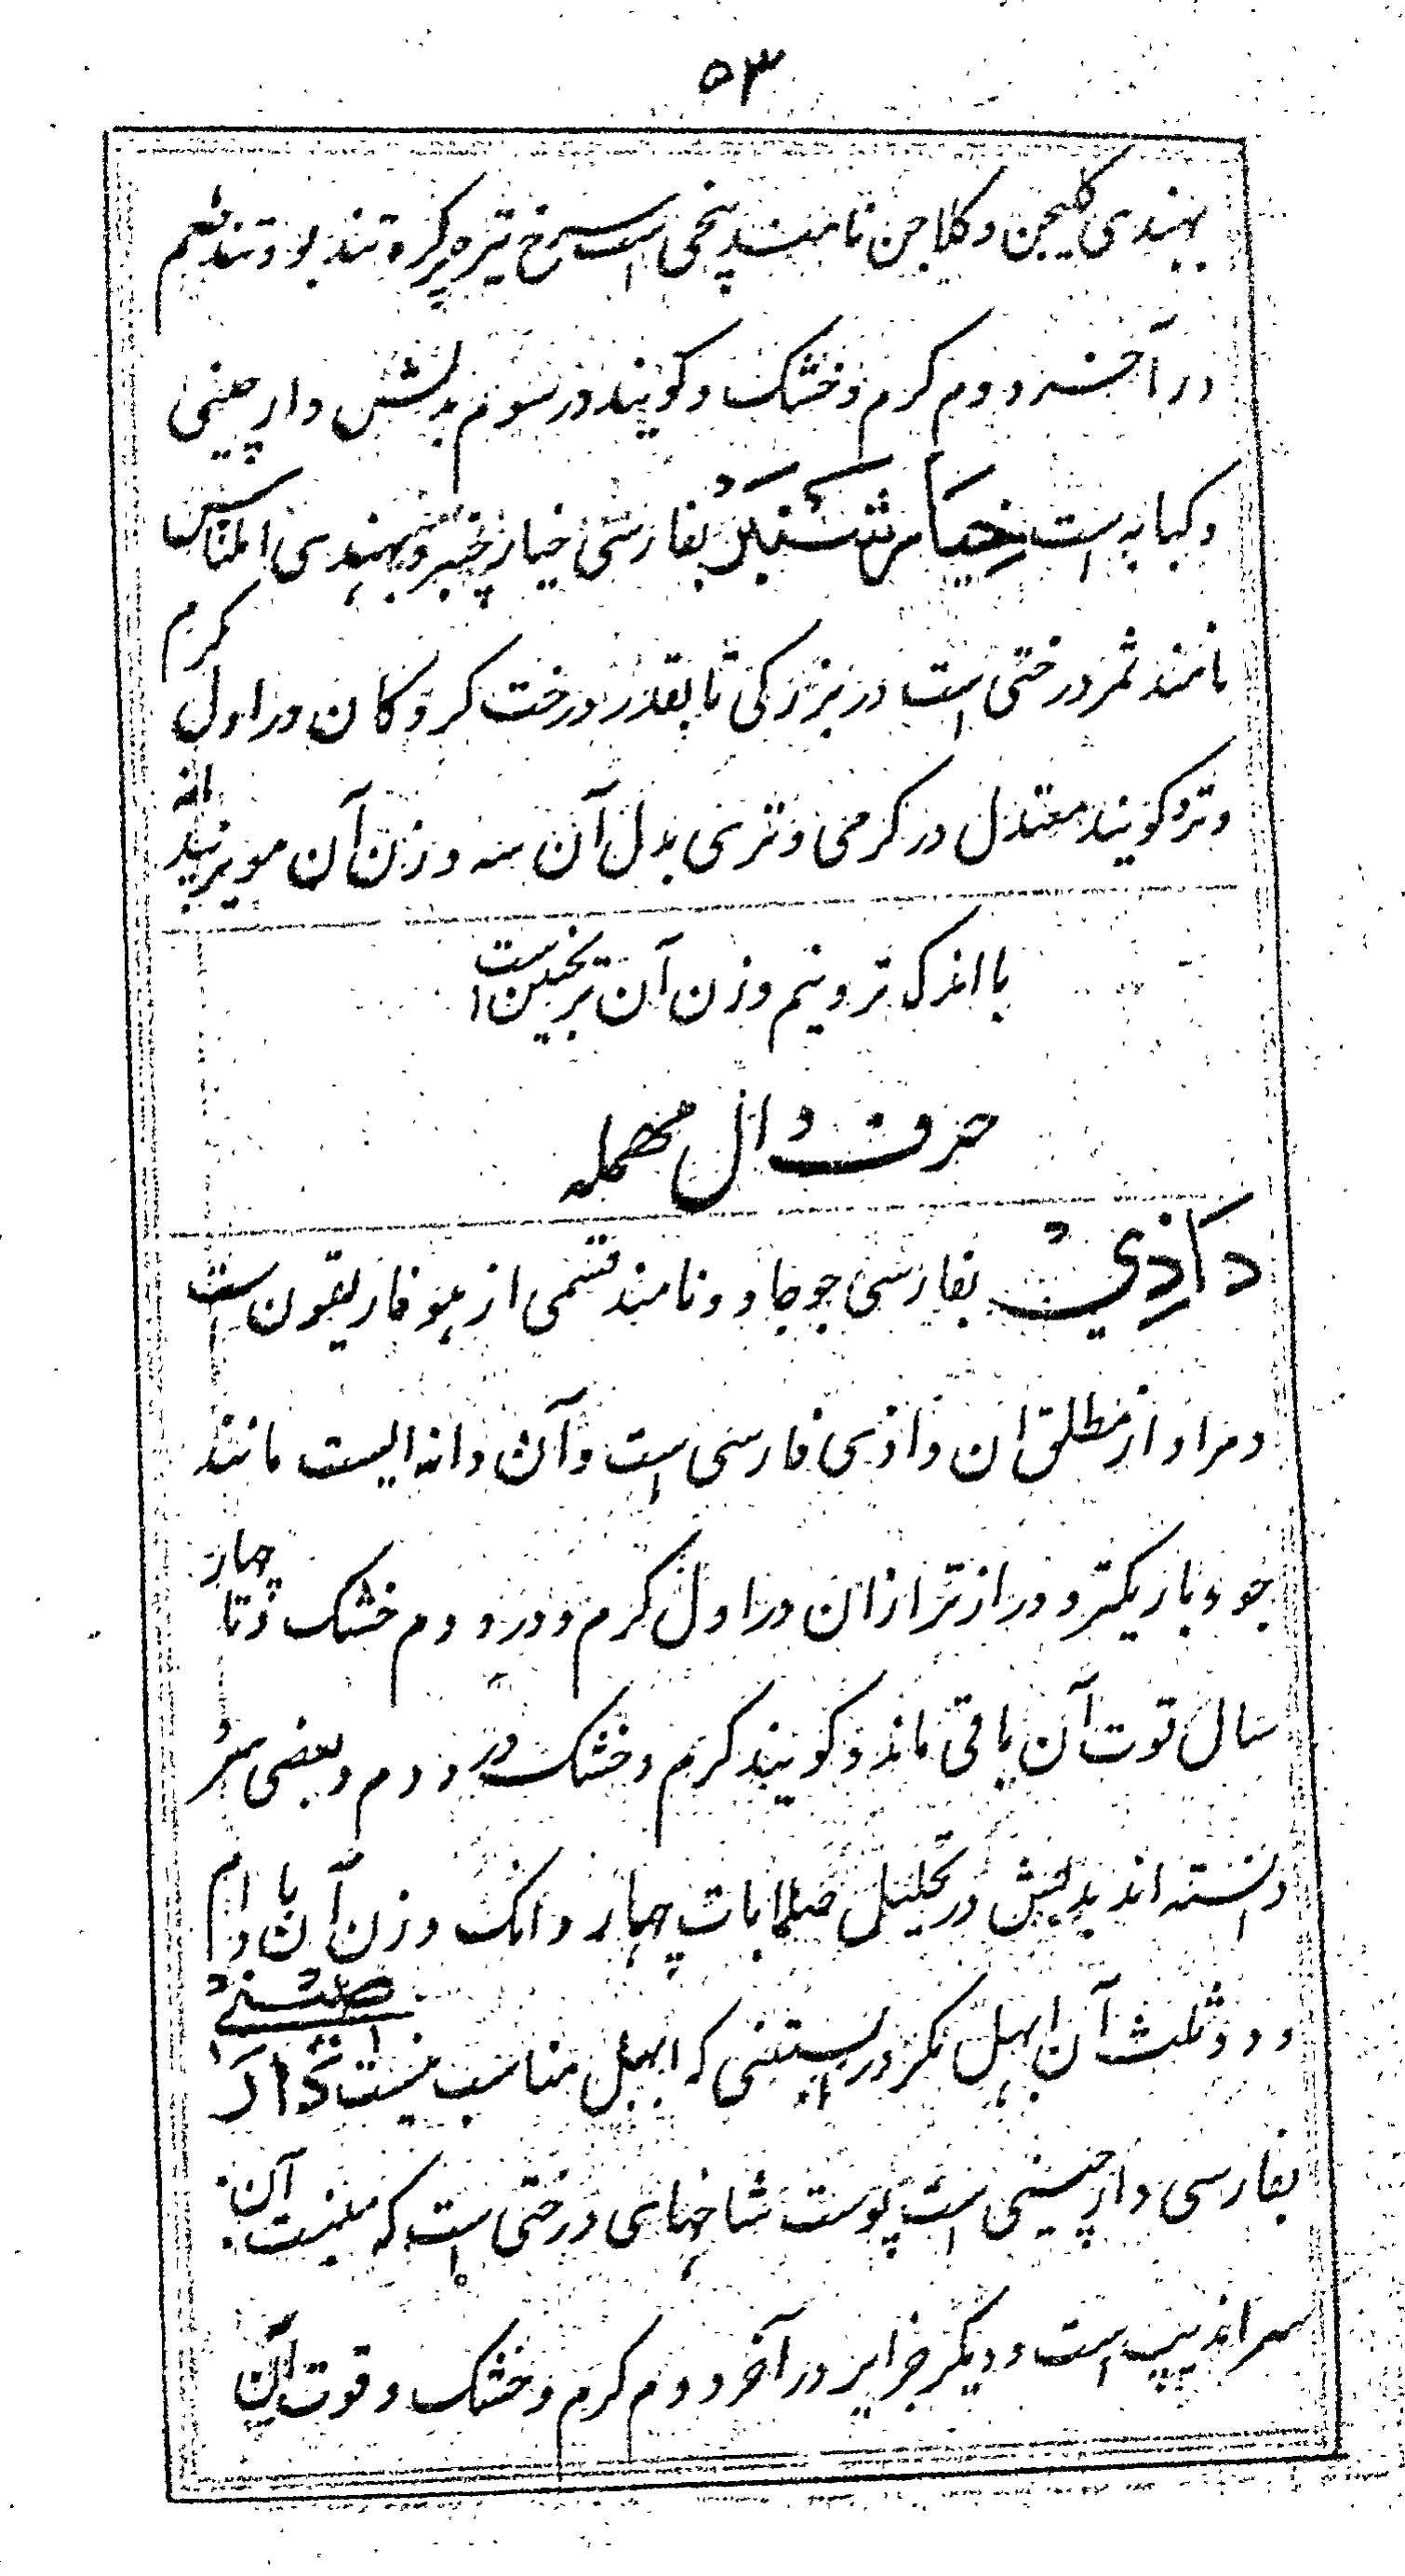 ۵۳
بهندی کلیجن و کلاجن نامند بیخی است سرخ تیره پر کره تند بو و تند طعم
در آخر دوم کرم و خشک و کویند در سوم بدلش دار چینی
و کبابه است خیار شنبر بفارسی خیار چنبر و بهندی املتاس
نامند ثمر درختی است در بزرکی تا بقدر درخت کردکان در اول کرم
و تر و کویند معتدل در کرمی و تری بدل آن سه وزن آن مویز بیدانه
با اندک تر و نیم وزن آن ترنجبین است
حرف دال مهمله
داذی بفارسی جو جادو نامند قسمی از هوفاریقون است
و مراد از مطلق ان داذی فارسی است و آن دانه ایست مانند
جو و باریکتر و دراز تر ازان در اول کرم و در دوم خشک و تا چهار
سال قوت آن باقی ماند و کویند کرم و خشک در دوم و بعضی سرد
دانسته اند بدلش در تحلیل صلابات چهار دانک وزن آن بادام
و دو ثلث آن ابهل مکر در آبستنی که ابهل مناسب نیست دار صینی
بفارسی دارچینی است پوست شاخهای درختی است که منبت آن
سراندیپ است و دیکر جزایر در آخر دوم کرم و خشک و قوت آن